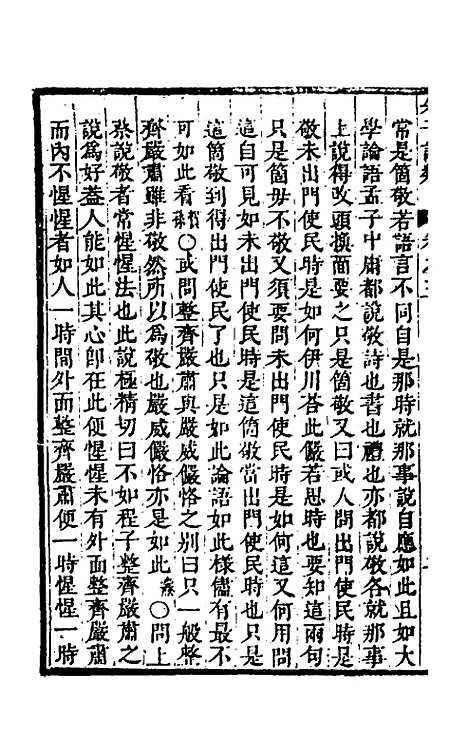 常是箇敬若語言不同自是那時就那事說自應如此且如大
學論語孟子中庸都說敬詩也書也禮也亦都說敬各就那事
上說得改頭換面要之只是箇敬又曰或人問出門使民時是
敬未出門使民時是如何伊川荅此儼若思時也要知這兩句
只是箇毋不敬又須要問未出門使民時是如何這又何用問
這自可見如未出門使民時是這箇敬當出門使民時也只是
這箇敬到得出門使民了也只是如此論語如此樣儘有最不
可如此看○或問整齊嚴肅與嚴威儼恪之別曰只一般整
齊嚴肅雖非敬然所以為敬也嚴威儼恪亦是如此○問上
蔡說敬者常惺惺法也此說極精切曰不如程子整齊嚴肅之
說為好葢人能如此其心卽在此便惺惺未有外面整齊嚴肅
而內不惺惺者如人一時間外面整齊嚴肅便一時惺惺一時